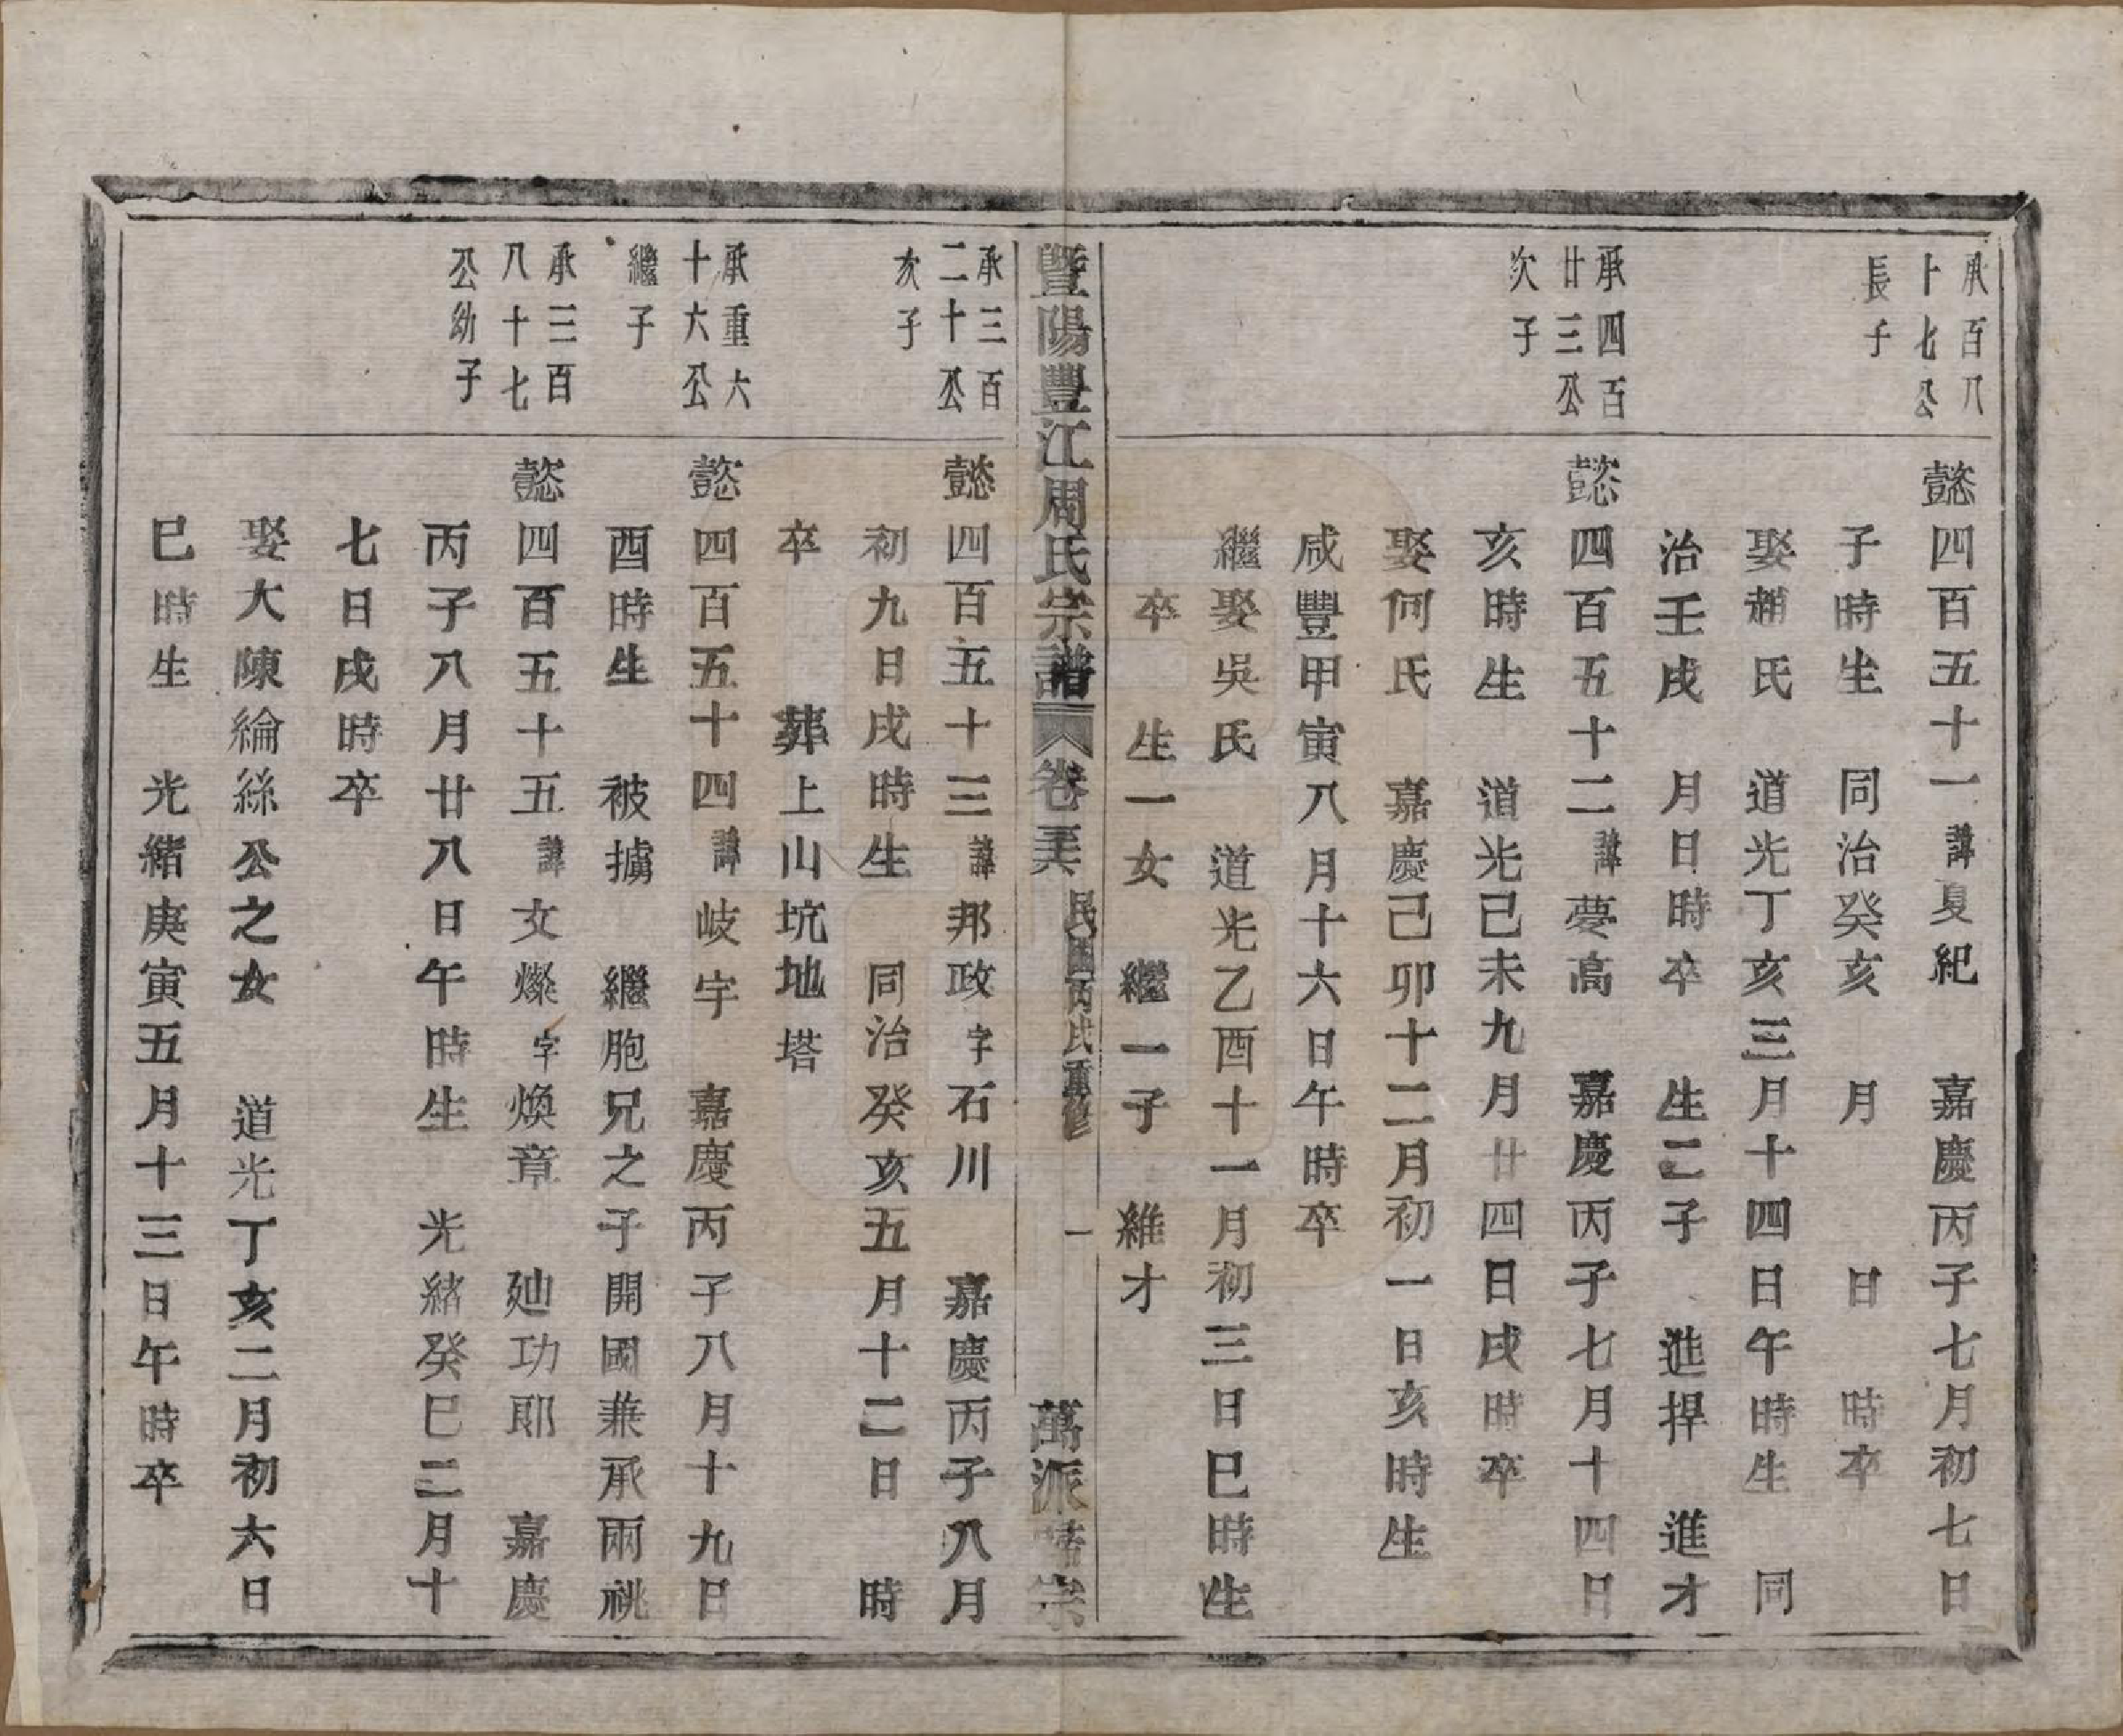 承百八
十七公
長子
懿四百五十一諱夏紀　嘉慶丙子七月初七日
子時生　同治癸亥　月　　日　時卒
娶趙氏　道光丁亥三月十四日午時生　同
治壬戌　月日時卒　生二子　進捍　進才
承四百
廿三公
次子
懿四百五十二諱夢高　嘉慶丙子七月十四日
亥時生　道光己未九月廿四日戌時卒
娶何氏　嘉慶己卯十二月初一日亥時生
咸豐甲寅八月十六日午時卒
繼娶吳氏　道光乙酉十一月初三日巳時生
卒　生一女　繼一子　維才
暨陽豐江周氏宗譜　卷　民國丙戌重修　一　萬派歸宗
承三百
二十公
次子
懿四百五十三諱邦政字石川　嘉慶丙子八月
初九日戌時生　同治癸亥五月十二日　時
卒　　葬上山坑地塔
承重六
十六公
繼子
懿四百五十四諱岐宇　嘉慶丙子八月十九日
酉時生　被擄　繼胞兄之子開國兼承兩祧
承三百
八十七
公幼子
懿四百五十五諱文燦字煥章　廸功郎　嘉慶
丙子八月廿八日午時生　光緒癸巳二月十
七日戌時卒
娶大陳綸絲公之女　道光丁亥二月初六日
巳時生　光緒庚寅五月十三日午時卒